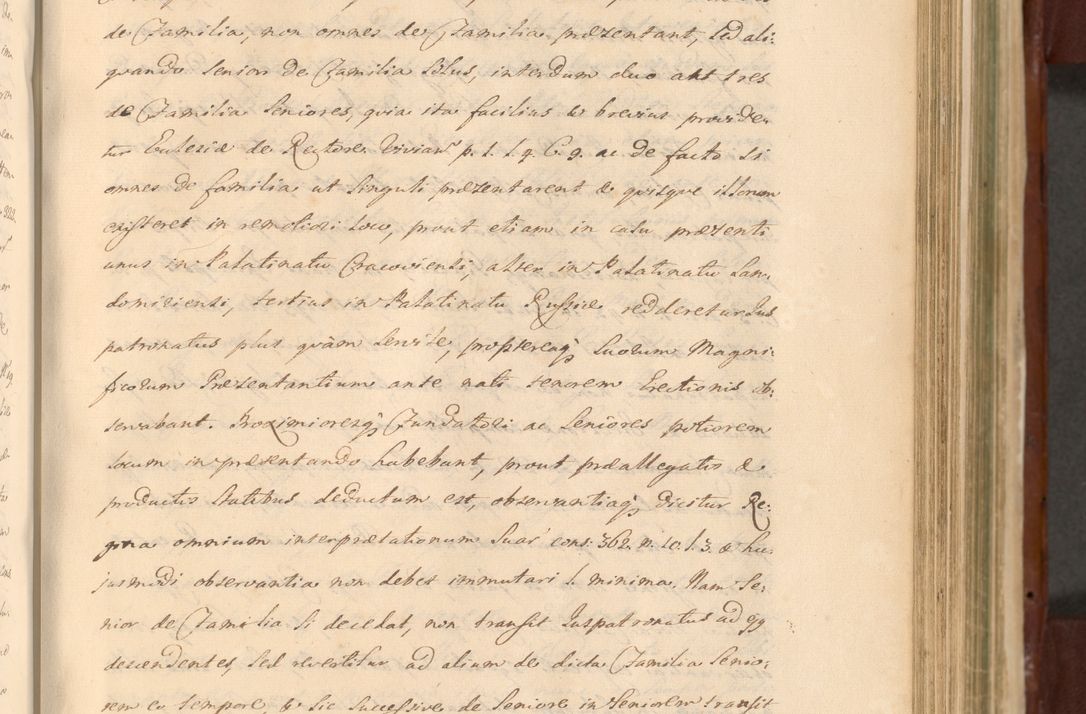 de Familia, non omnes de Familia præzentant, sed ali:
quando Senior de Familia Solus, interdum duo aut tres
de Familia Seniores, quia ita facilius & brevius provide„
tur Eclesiæ de Rectore Vivian: p. 1. l. 4. C. 9. ac de facto si
omnes de familia ut singuli præzentarent & quisque illorum
existeret in remotiori loco, prout etiam in casu præzenti
unus in Palatinatu Cracoviensi, alter in Palatinatu San„
domiriensi, tertius in Palatinatu Russiæ redderetur Jus
patronatus plus quàm servile, proptereaq3 Suorum Magni:
ficorum Præzentantium ante nati tenorem Erectionis ob:
servabant. Proximioresq3 Fundatori ac Seniores potiorem
locum in præsentando habebant, prout præallegatis &
productis Statibus deductum est, observantiaq3 dicitur Re:
gina omnium interprætationum Suar' cons: 362. n. 10. l. 3. & hu„
jusmodi observantia non debet immutari l. minima. Nam Se:
nior de Familia si decedat, non transit Juspatronatus ad
descendentes, sed revertitur ad alium de dicta Familia Senio:
rem eo tempore, & sic Successive de Seniore in Seniorem transit